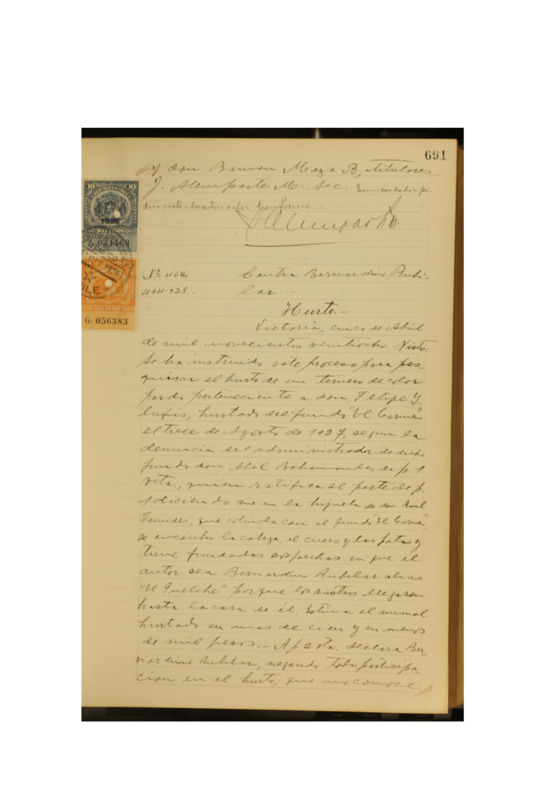 691
y don Ramon Meza B, titulares
J. Alemparte M- Sec.- Enmendado-
conforme.
Nº
4-IV-928.
Contra Bernardino Anti-
lar.-
Hurto.-
Victoria, cinco de Abril
de mil novecientos veintiocho. Vistos,
Se ha instruido este proceso para pes
quisar el hurto de un ternero de color
pardo perteneciente a don Felipe Y.
hurtado del fundo "El Carmen"
el trece de Agosto de 1927, segun la
denuncia del administrador de dicho
fundo don Abel Bahamondes de fs 1
vta, quien ratifica el parte de fs
1 diciendo que en la hijuela de don Raul
que colinda con el fundo "El Carmen"
se encontro la cabeza, el cuero y las patas y
tiene fundadas sospechas en que el
autor sea Bernardino alias
"El Quelche" por que los rastros llegaron
hasta la casa de él. Estima el animal
hurtado en mas de cien y en menos
de mil pesos.- A fs 2 vta. declara Ber-
nardino negando toda participa-
cion en el hurto, que no conoce
10 10
CHILE
G. 056383